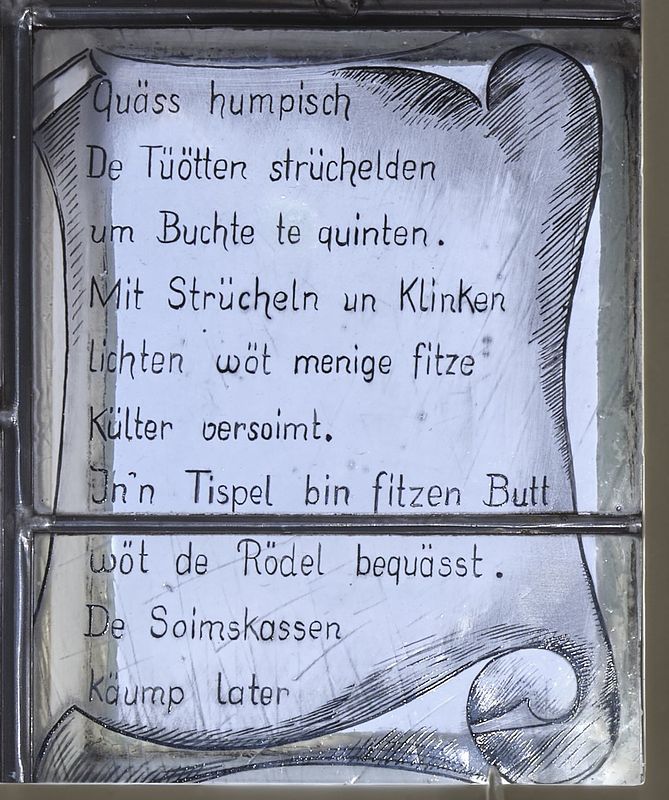 Quäss humpisch
De Tüötten strüchelden
um Buchte te quinten.
Mit Strücheln un Klinken
lichten wöt menige fitze
Külter versoimt.
In'n Tispel bin fitzen Butt
wöt de Rödel bequässt.
De Soimskassen
käump later